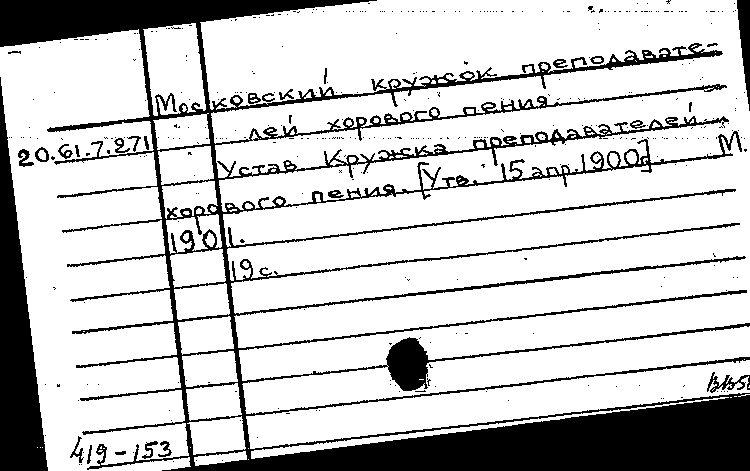 Московский кружок преподавате-
лей хорового пения.
20.61.7.271
Устав Кружка преподавателей
хорового пения. [Утв. 15 апр. 1900г]. М.
1901.
19 с.
419-153